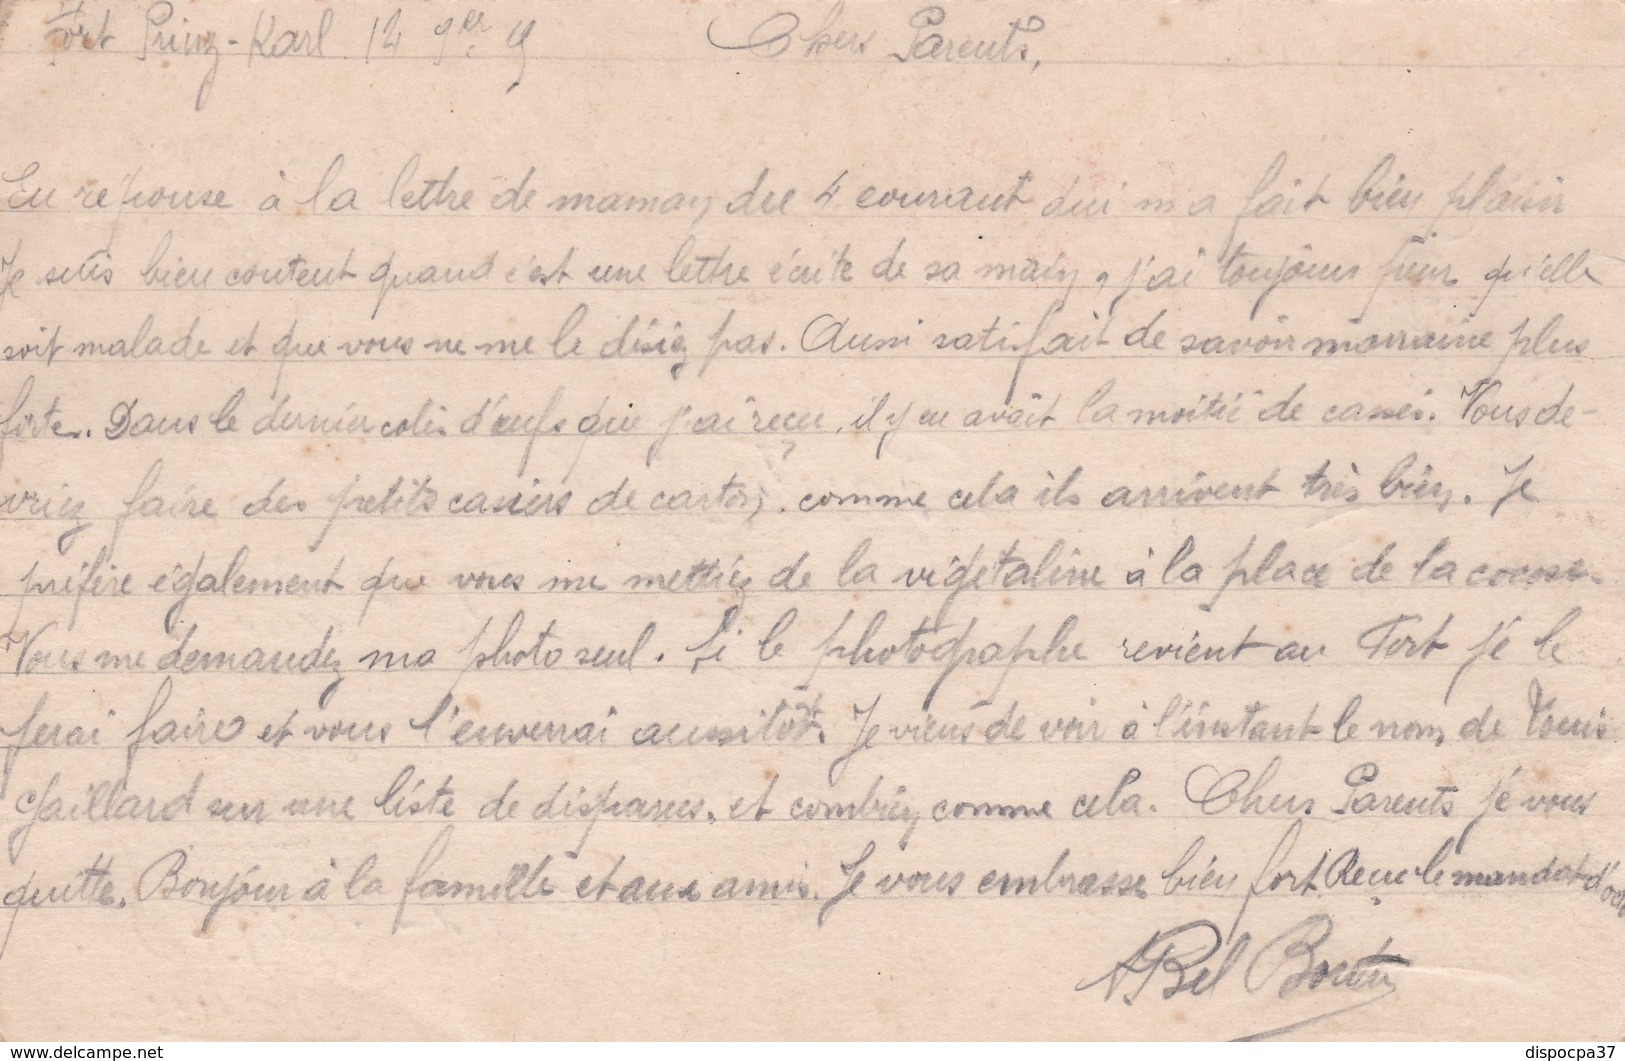 Fort Prinz-Karl. 14 9er 15 Chers Parents,
En reponse à la lettre de maman du 4 courant qui m'a fait bien plaisir
Je suis bien content quand c'est une lettre écrite de sa main, j'ai toujours peur qu'elle
soit malade et que vous ne me le disiez pas. Aussi satisfait de savoir marraine plus
forte. Dans le dernier colis d'œufs que j'ai reçu, il y en avait la moitié de cassé. Vous de-
vriez faire des petits casiers de carton, comme cela ils arrivent très bien. Je
préfère également que vous me mettiez de la végétaline à la place de la cocose.
Vous me demandez ma photo seul. Si le photographe revient au Fort je le
ferai faire et vous l'enverrai aussitôt. Je viens de voir à l'instant le nom de Louis
Gaillard sur une liste de disparus, et combien comme cela. Chers Parents je vous
quitte. Bonjour à la famille et aux amis. Je vous embrasse bien fort. Reçu le mandat d'oct
Abel
dispocpa37